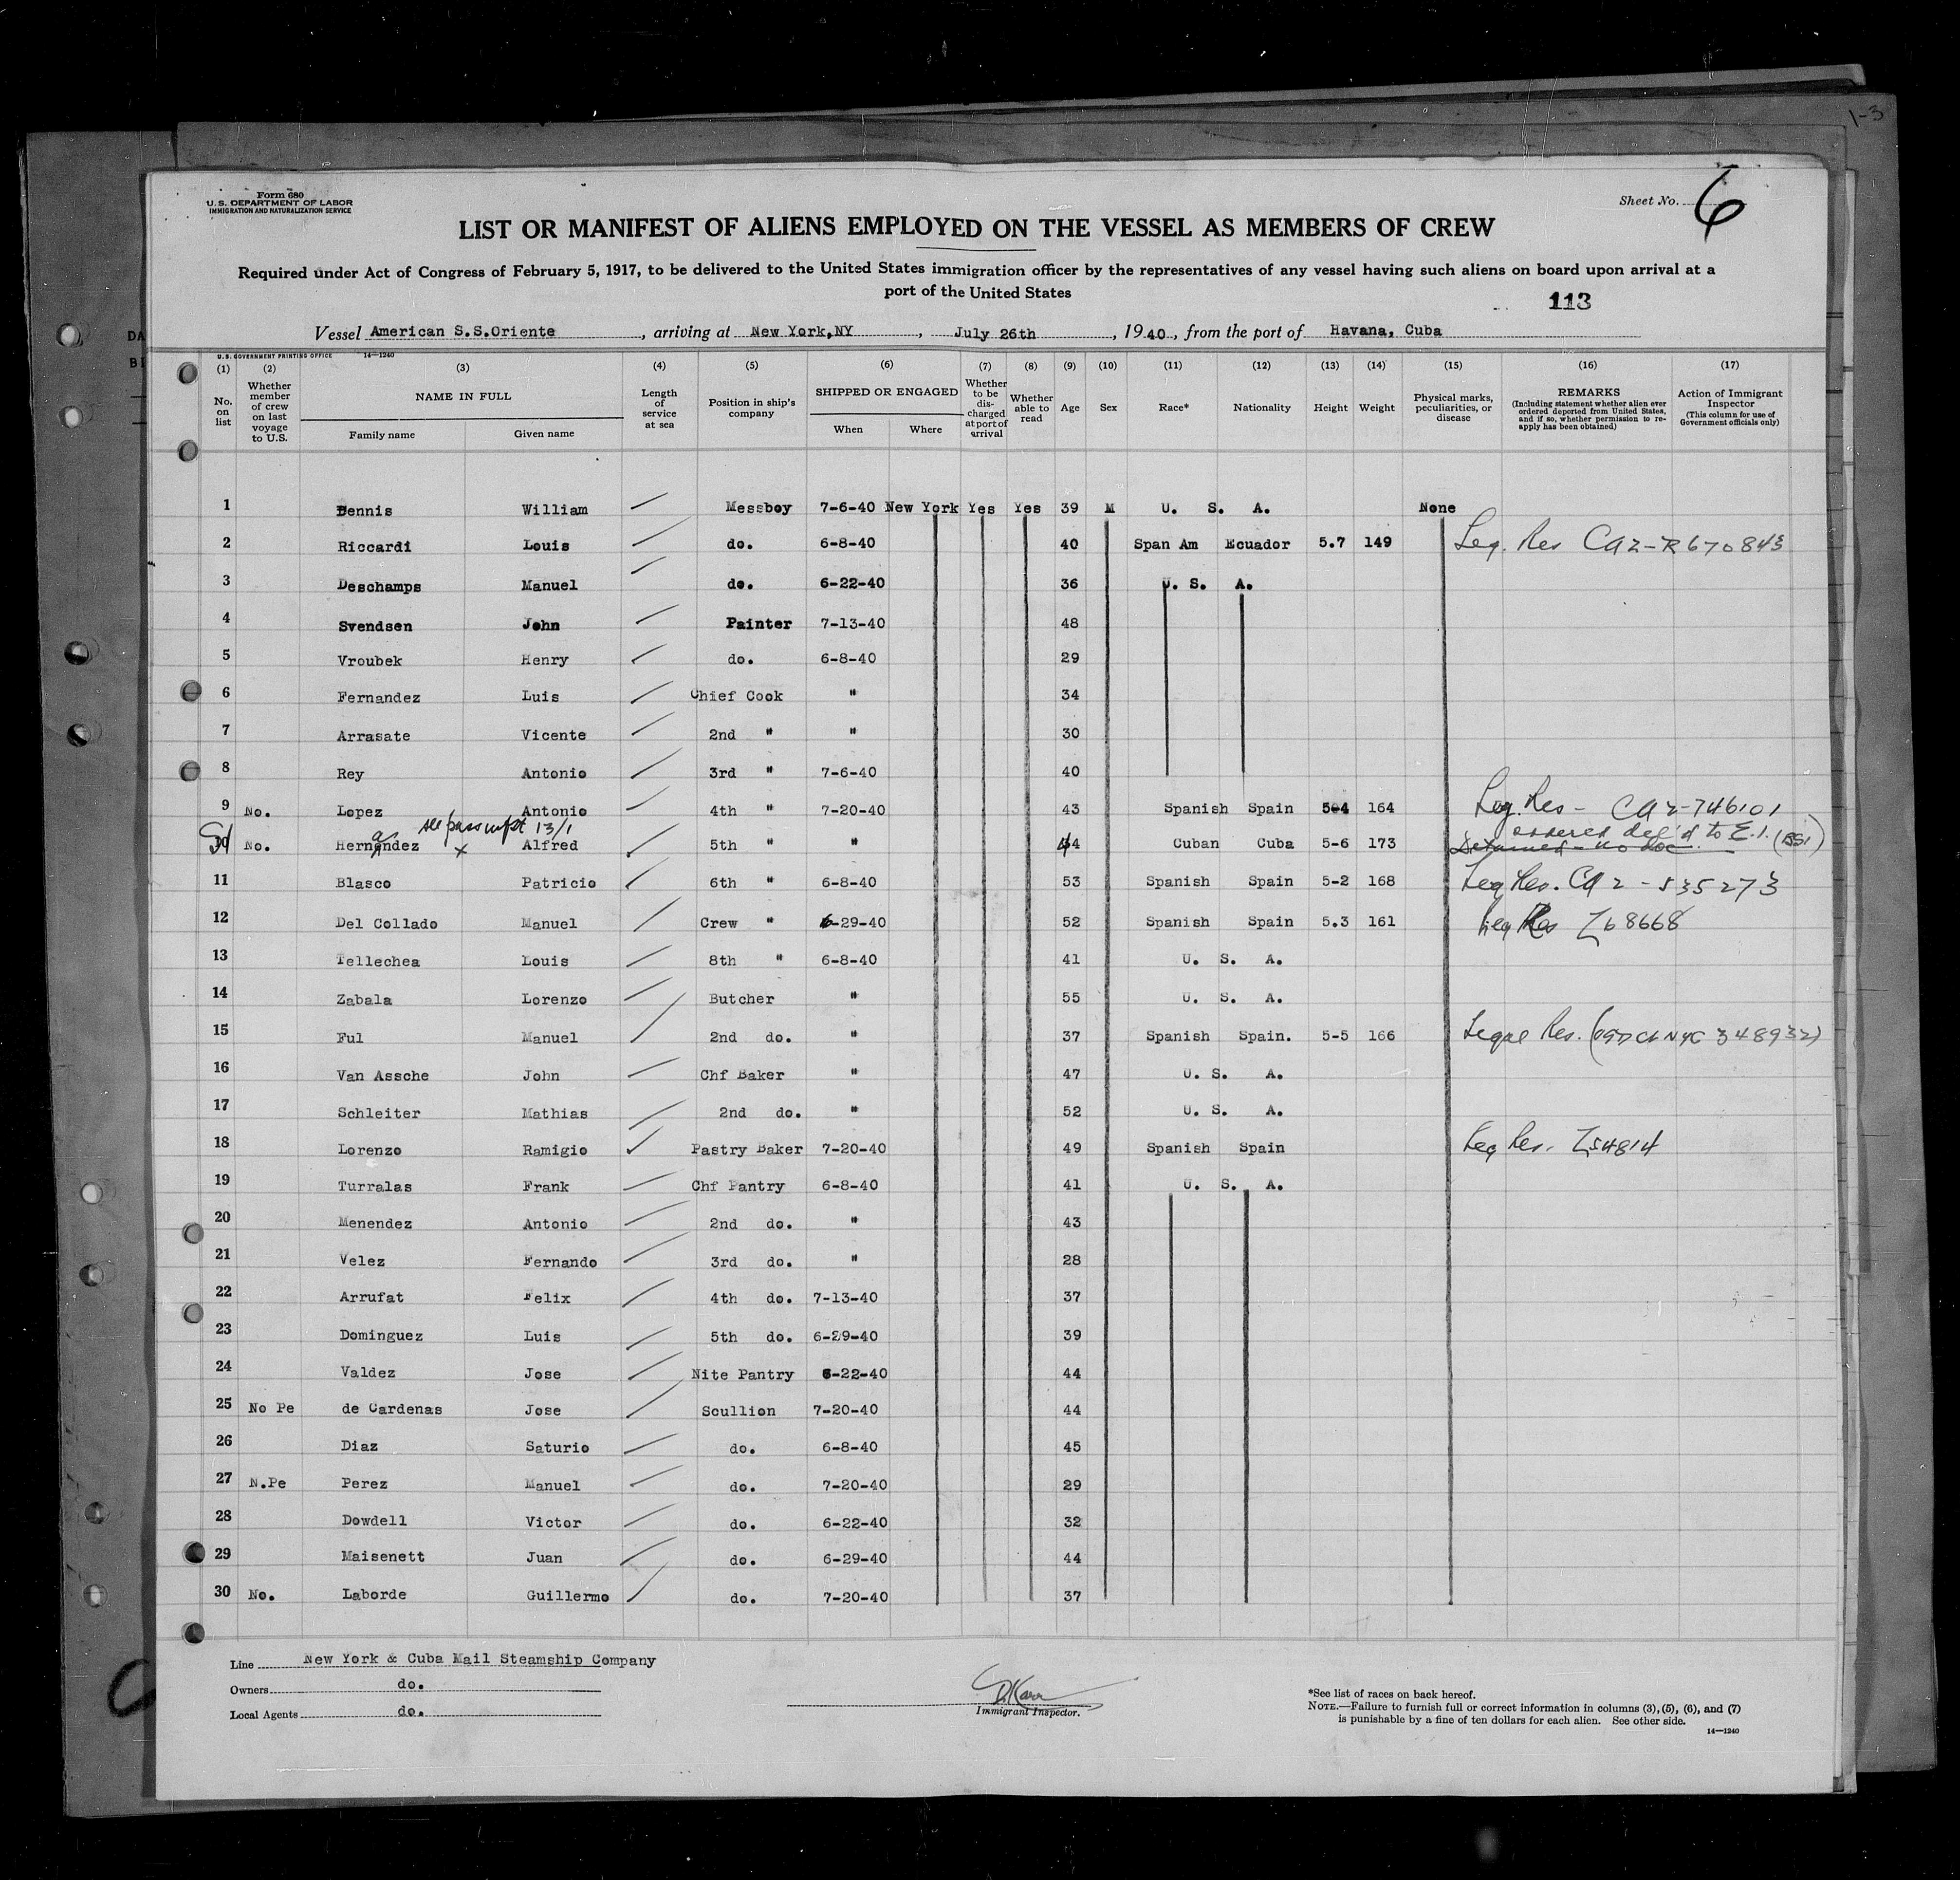 1-3
Form 680
U.S. DEPARTMENT OF LABOR
IMMIGRATION AND NATURALIZATION SERVICE
Sheet No. 6
LIST OR MANIFEST OF ALIENS EMPLOYED ON THE VESSEL AS MEMBERS OF CREW
Required under Act of Congress of February 5, 1917, to be delivered to the United States immigration officer by the representatives of any vessel having such aliens on board upon arrival at a
port of the United States
113
Vessel American S.S.Oriente, arriving at New York,NY, July 26th, 1940, from the port of Havana, Cuba
U.S. GOVERNMENT PRINTING OFFICE 14—1240
(1) (2) (3) (4) (5) (6) (7) (8) (9) (10) (11) (12) (13) (14) (15) (16) (17)
No. on list
Whether member of crew on last voyage to U.S.
NAME IN FULL
Family name Given name
Length of service at sea
Position in ship's company
SHIPPED OR ENGAGED
When Where
Whether to be discharged at port of arrival
Whether able to read
Age
Sex
Race*
Nationality
Height
Weight
Physical marks, peculiarities, or disease
REMARKS
(Including statement whether alien ever ordered deported from United States, and if so, whether permission to re-apply has been obtained)
Action of Immigrant Inspector
(This column for use of Government officials only)
1 Dennis William Messboy 7-6-40 New York Yes Yes 39 M U. S. A. None
2 Riccardi Louis do. 6-8-40 40 Span Am Ecuador 5.7 149 Leg. Res CA2-R670843
3 Deschamps Manuel do. 6-22-40 36 U. S. A.
4 Svendsen John Painter 7-13-40 48
5 Vroubek Henry do. 6-8-40 29
6 Fernandez Luis Chief Cook " 34
7 Arrasate Vicente 2nd " " 30
8 Rey Antonio 3rd " 7-6-40 40
9 No. Lopez Antonio 4th " 7-20-40 43 Spanish Spain 5-4 164 Leg. Res - CA2-746101
see pass mfst 13/1
ordered del'd to E.I. (BSI)
No. Hernandez x Alfred 5th " " 44 Cuban Cuba 5-6 173 Detained - no doc
11 Blasco Patricio 6th " 6-8-40 53 Spanish Spain 5-2 168 Leg Res. CA 2-535273
12 Del Collado Manuel Crew " 6-29-40 52 Spanish Spain 5.3 161 Leg Res Z68668
13 Tellechea Louis 8th " 6-8-40 41 U. S. A.
14 Zabala Lorenzo Butcher " 55 U. S. A.
15 Ful Manuel 2nd do. " 37 Spanish Spain. 5-5 166 Legal Res. 348932)
16 Van Assche John Chf Baker " 47 U. S. A.
17 Schleiter Mathias 2nd do. " 52 U. S. A.
18 Lorenzo Ramigio Pastry Baker 7-20-40 49 Spanish Spain Leg Res. Z54814
19 Turralas Frank Chf Pantry 6-8-40 41 U. S. A.
20 Menendez Antonio 2nd do. " 43
21 Velez Fernando 3rd do. " 28
22 Arrufat Felix 4th do. 7-13-40 37
23 Dominguez Luis 5th do. 6-29-40 39
24 Valdez Jose Nite Pantry 6-22-40 44
25 No Pe de Cardenas Jose Scullion 7-20-40 44
26 Diaz Saturio do. 6-8-40 45
27 N.Pe Perez Manuel do. 7-20-40 29
28 Dowdell Victor do. 6-22-40 32
29 Maisenett Juan do. 6-29-40 44
30 No. Laborde Guillermo do. 7-20-40 37
Line New York & Cuba Mail Steamship Company
Owners do.
Local Agents do.
Immigrant Inspector.
*See list of races on back hereof.
NOTE.—Failure to furnish full or correct information in columns (3), (5), (6), and (7)
is punishable by a fine of ten dollars for each alien. See other side.
14—1240